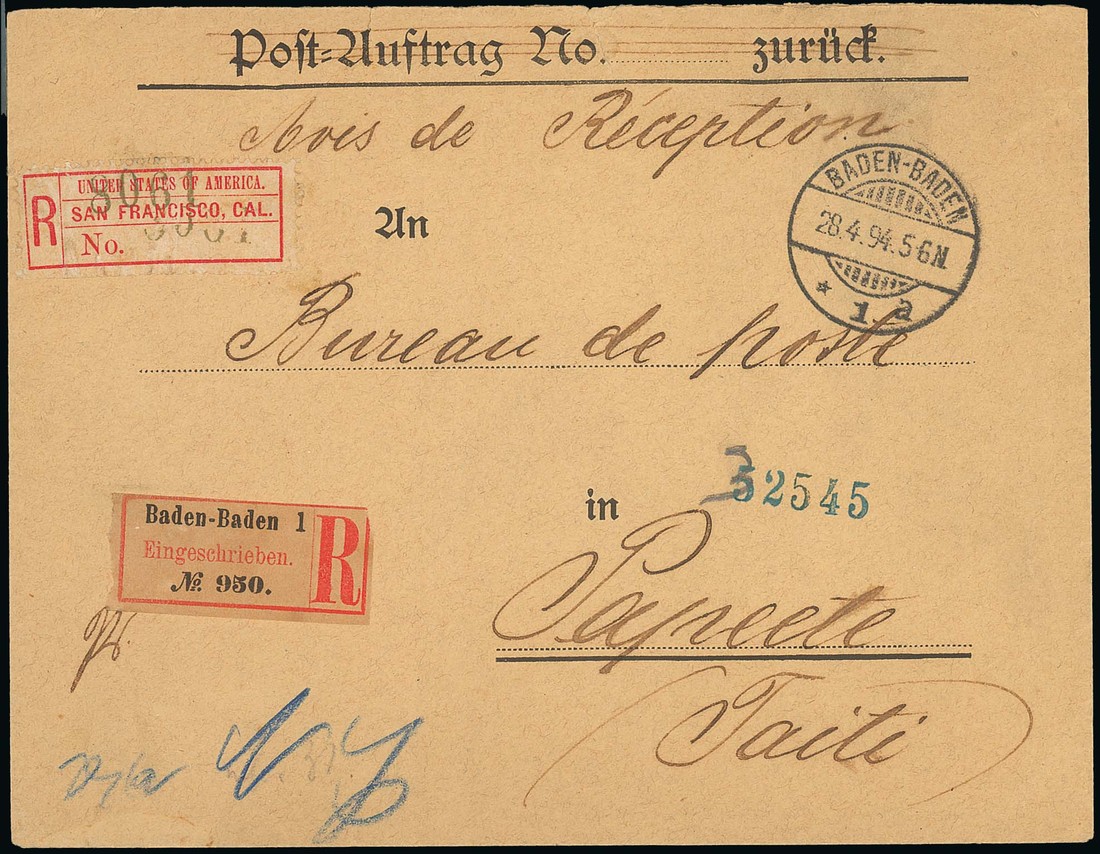 Post-Auftrag No. zurück.
Avis de Réception
UNITED STATES OF AMERICA.
R SAN FRANCISCO, CAL.
No.
8061
An
BADEN-BADEN
28.4.94.5-6N.
* 1. a
Bureau de poste
in
52545
3
Baden-Baden 1
Eingeschrieben.
№ 950.
R
Papeete
(Taiti)